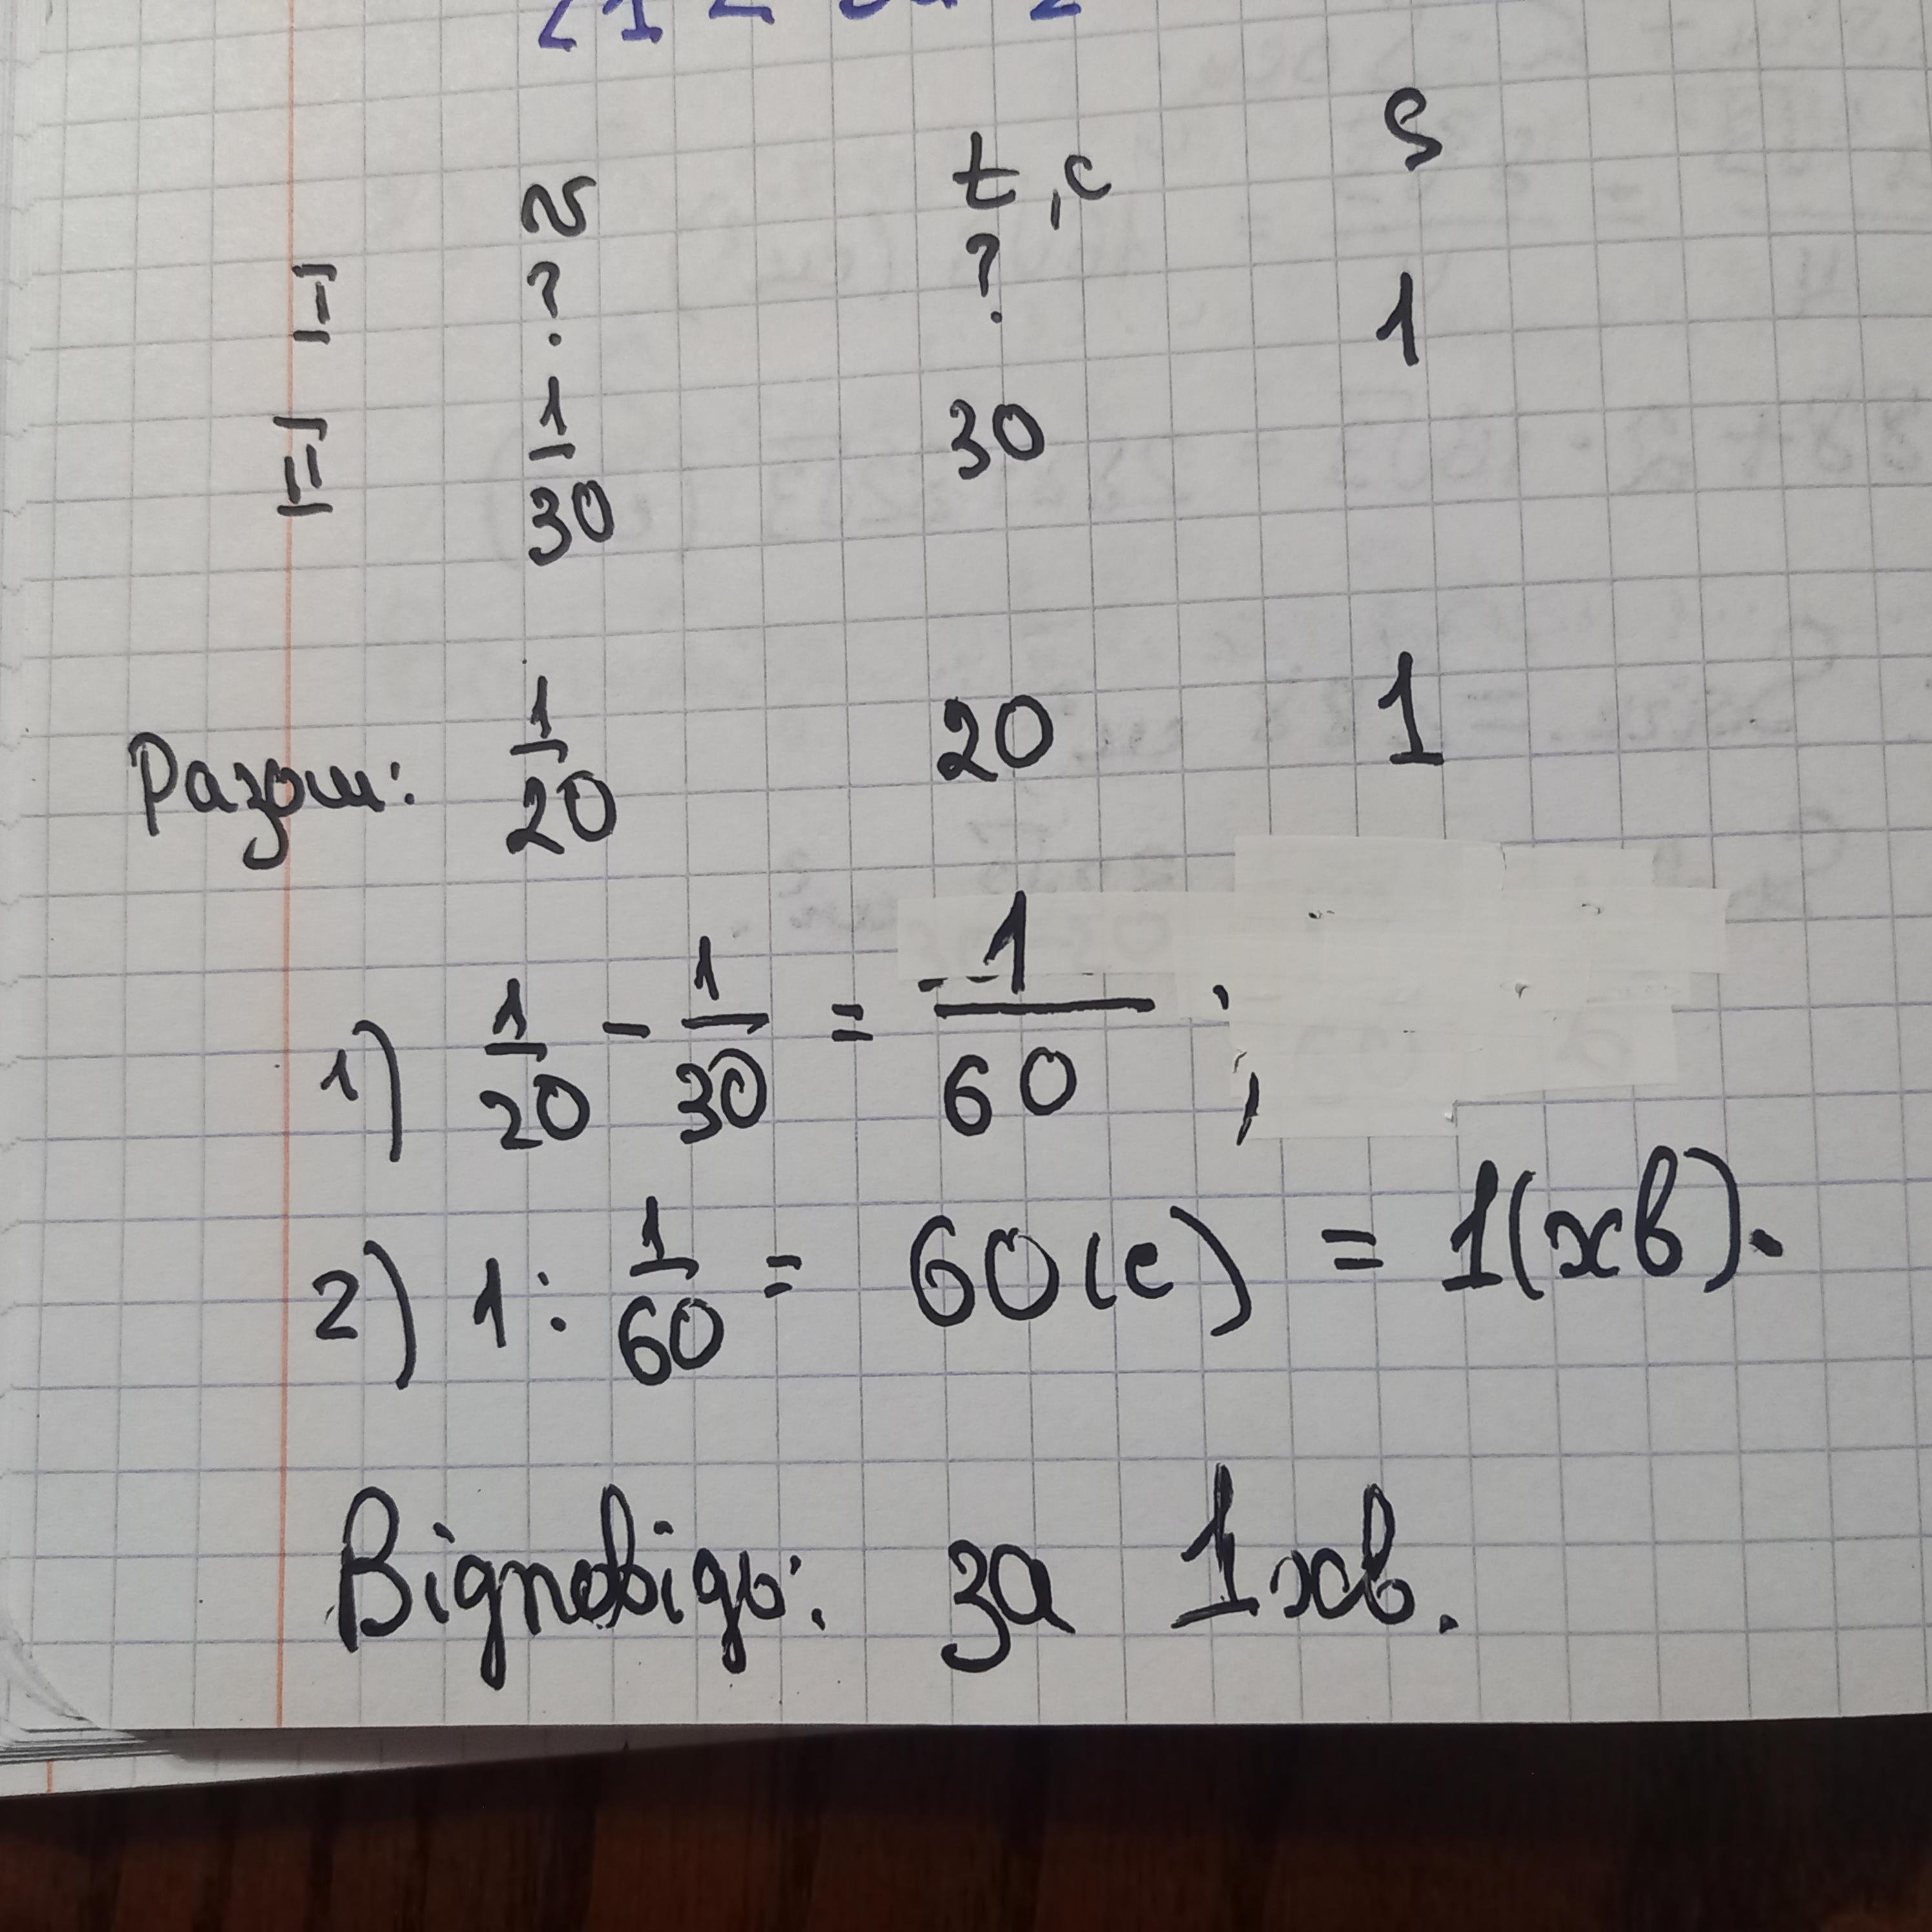 v t, c S
I ? ? 1
II 1/30 30
Разом: 1/20 20 1
1) 1/20 - 1/30 = 1/60 ;
2) 1 : 1/60 = 60 (с) = 1 (хв).
Відповідь: за 1 хв.